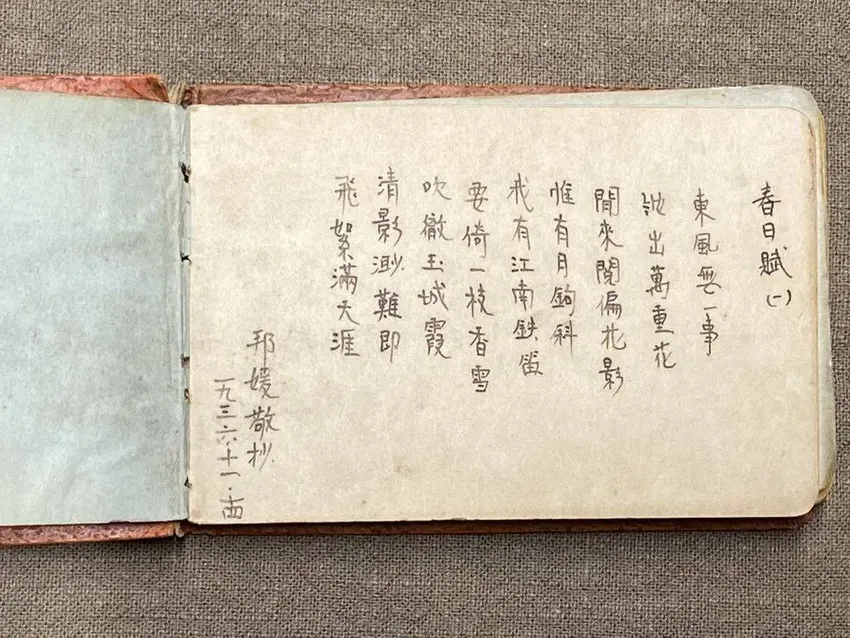 春日賦(一)
東風無一事
妝出萬重花
閒來閱偏花影
惟有月鉤斜
我有江南鉄笛
要倚一枝香雪
吹徹玉城霞
清影渺難即
飛絮滿天涯
邦媛敬抄
一九三六.十一.十四